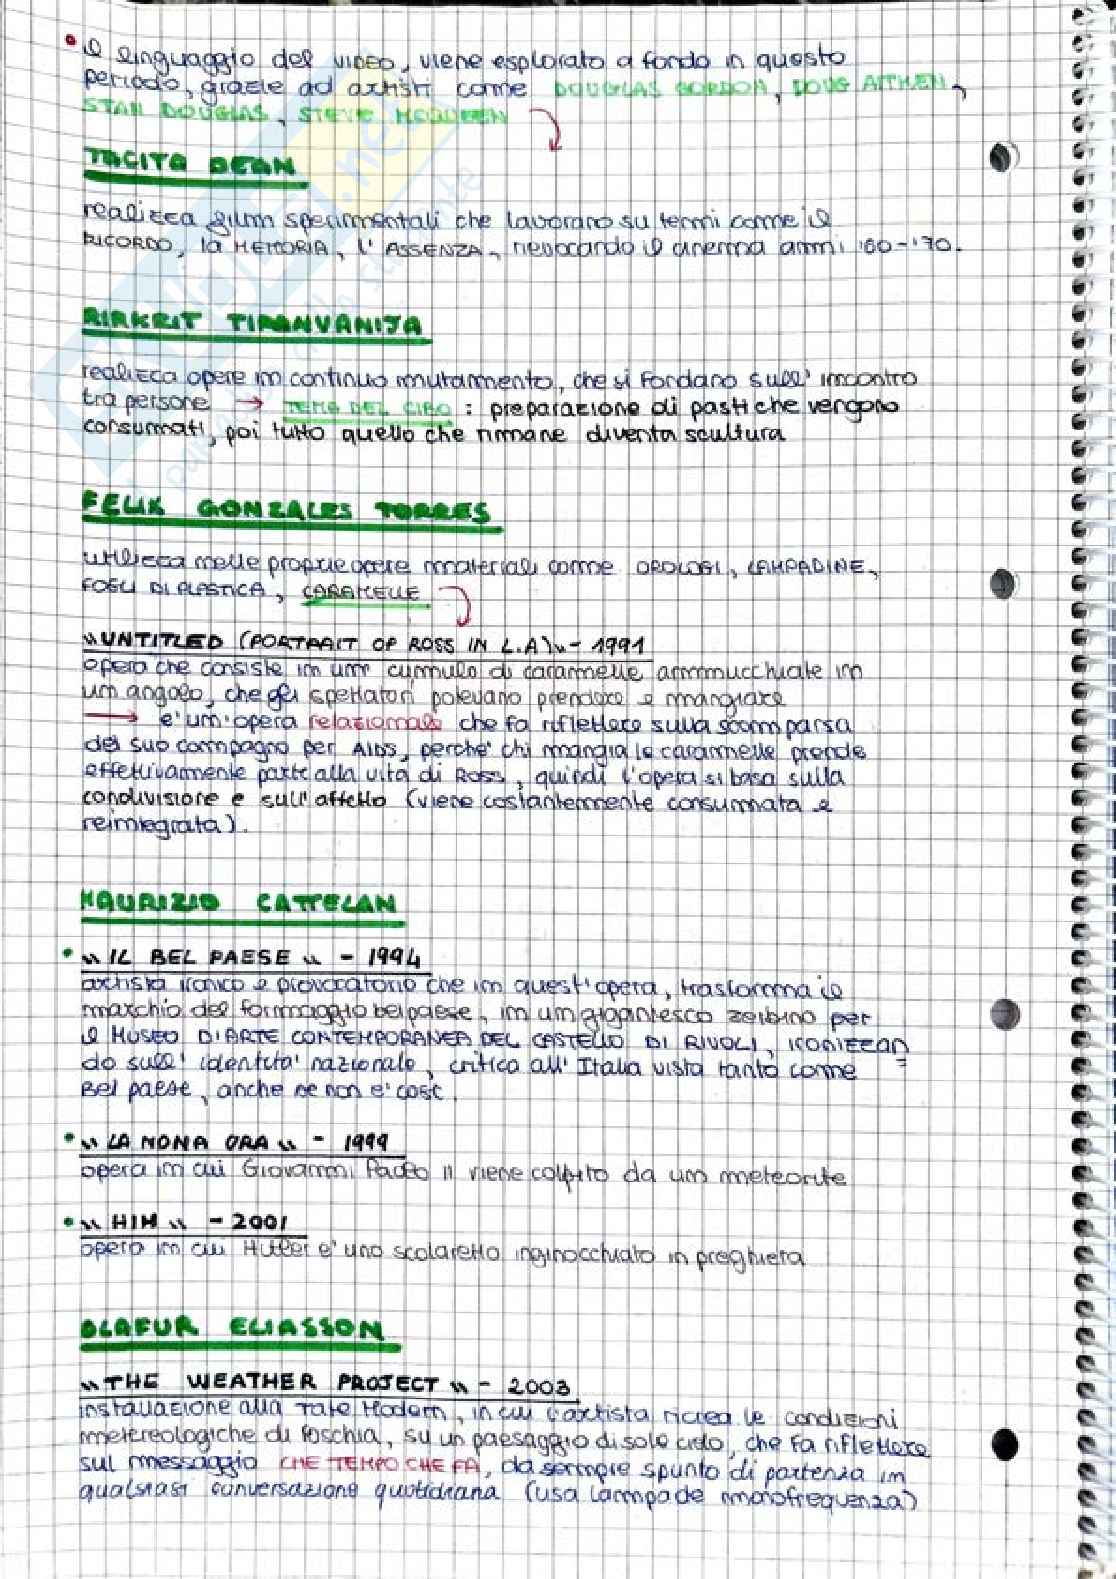 • il linguaggio del VIDEO, viene esplorato a fondo in questo
periodo, grazie ad artisti come DOUGLAS GORDON, DOUG AITKEN,
STAN DOUGLAS, STEVE MCQUEEN
TACITA DEAN
realizza film sperimentali che lavorano su temi come il
RICORDO, la MEMORIA, l'ASSENZA, rievocando il cinema anni '60-'70.
RIRKRIT TIRANVANIJA
realizza opere in continuo mutamento, che si fondano sull'incontro
tra persone → TEMA DEL CIBO : preparazione di pasti che vengono
consumati, poi tutto quello che rimane diventa scultura
FELIX GONZALES TORRES
utilizza nelle proprie opere materiali come OROLOGI, LAMPADINE,
FOGLI DI PLASTICA, CARAMELLE
"UNTITLED (PORTRAIT OF ROSS IN L.A)" - 1991
opera che consiste in un cumulo di caramelle ammucchiate in
un angolo, che gli spettatori potevano prendere e mangiare
→ e' un'opera relazionale che fa riflettere sulla scomparsa
del suo compagno per AIDS, perche' chi mangia le caramelle prende
effettivamente parte alla vita di ROSS, quindi l'opera si basa sulla
condivisione e sull'affetto (viene costantemente consumata e
reintegrata).
MAURIZIO CATTELAN
• "IL BEL PAESE" - 1994
artista ironico e provocatorio che in quest'opera, trasforma il
marchio del formaggio belpaese, in un gigantesco zerbino per
il MUSEO D'ARTE CONTEMPORANEA DEL CASTELLO DI RIVOLI, IRONIZZAN=
do sull'identita' nazionale, critica all'Italia vista tanto come
Bel paese, anche se non e' cosi'.
• "LA NONA ORA" - 1999
opera in cui Giovanni Paolo II viene colpito da un meteorite
• "HIM" - 2001
opera in cui Hitler e' uno scolaretto inginocchiato in preghiera
OLAFUR ELIASSON
"THE WEATHER PROJECT" - 2003
installazione alla Tate Modern, in cui l'artista ricrea le condizioni
metereologiche di foschia, su un paesaggio di solo cielo, che fa riflettere
sul messaggio CHE TEMPO CHE FA, da sempre spunto di partenza in
qualsiasi conversazione quotidiana (usa lampade monofrequenza)